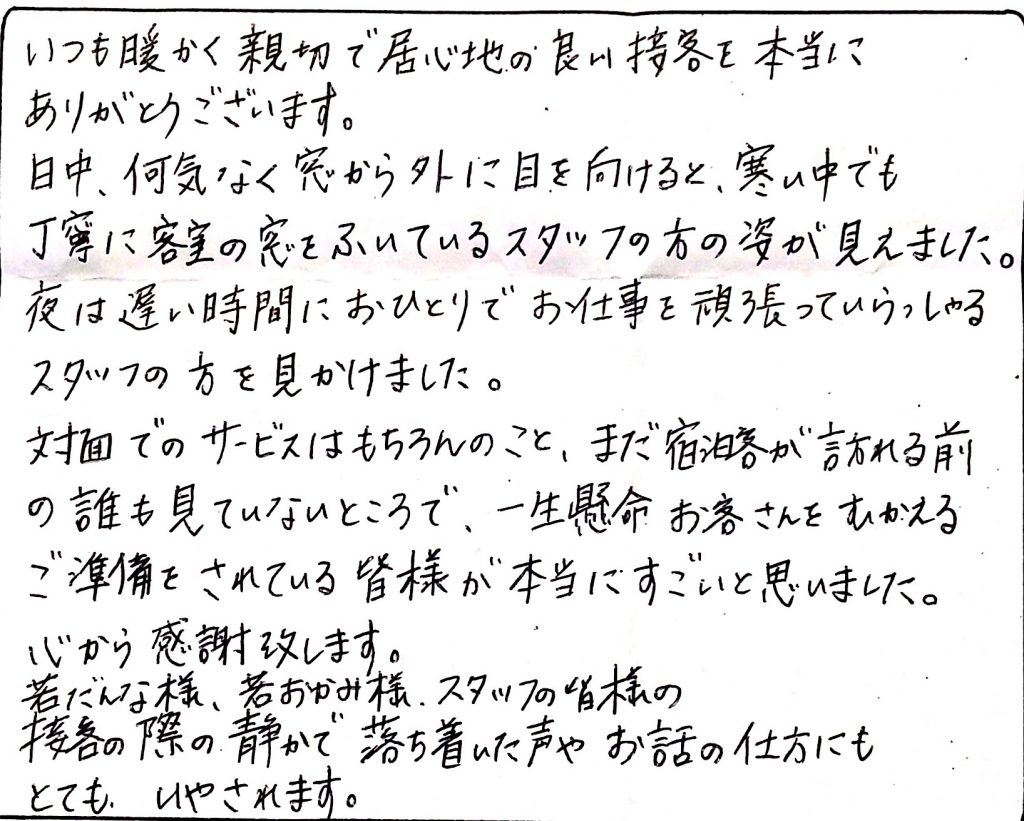 いつも暖かく親切で居心地の良い接客を本当に
ありがとうございます。
日中、何気なく窓から外に目を向けると、寒い中でも
丁寧に客室の窓をふいているスタッフの方の姿が見えました。
夜は遅い時間におひとりでお仕事を頑張っていらっしゃる
スタッフの方を見かけました。
対面でのサービスはもちろんのこと、まだ宿泊客が訪れる前
の誰も見ていないところで、一生懸命お客さんをむかえる
ご準備をされている皆様が本当にすごいと思いました。
心から感謝致します。
若だんな様、若おかみ様、スタッフの皆様の
接客の際の静かで落ち着いた声やお話の仕方にも
とても、いやされます。